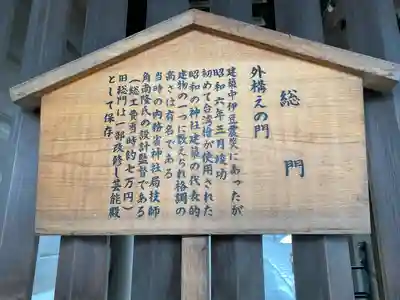 総門
外構えの門
建築中伊豆震災にあったが
昭和六年三月竣功
初めて台湾檜が使用された
昭和の神社建築の代表的
建物の一つに数えられ格調の
高さは有名である
当時の内務省神社局技師
角南隆氏の設計監督である
(総工費当時約七万円)
旧総門は一部改修し芸能殿
として保存